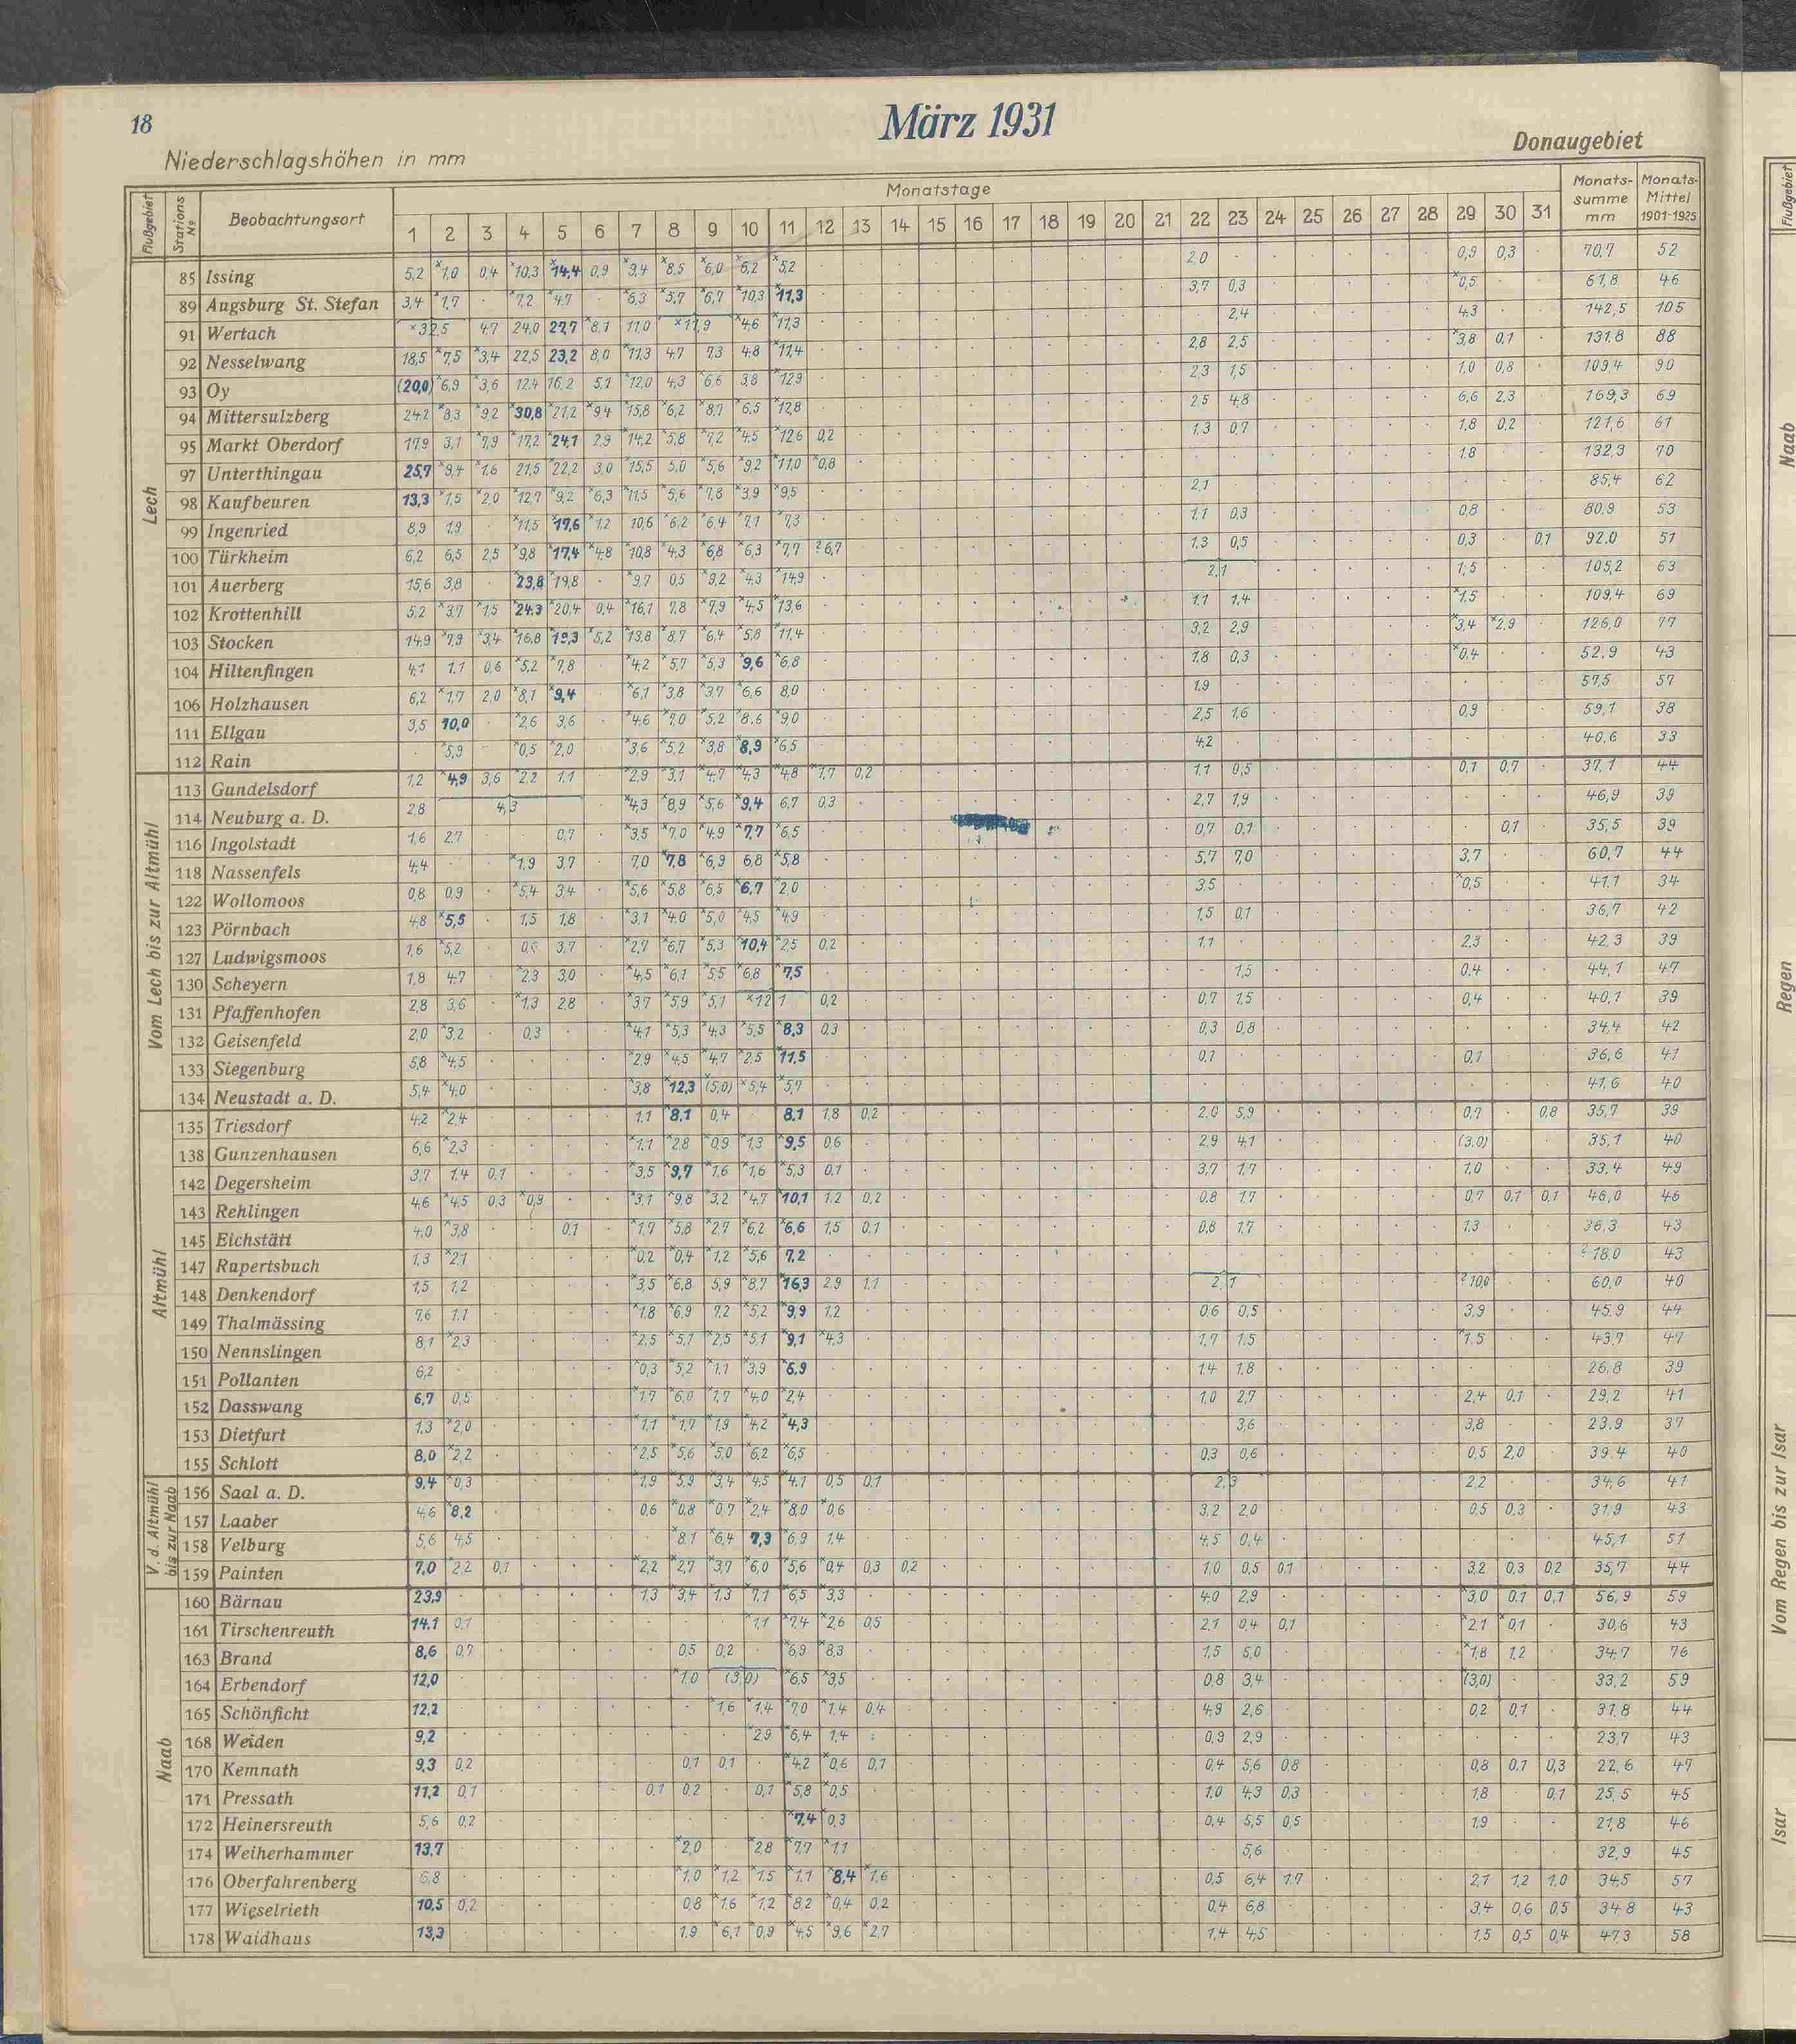 18
März 1931
Donaugebiet
Niederschlagshöhen in mm
Flußgebiet Stations № Beobachtungsort Monatstage Monats-summe mm Monats-Mittel 1901-1925
1 2 3 4 5 6 7 8 9 10 11 12 13 14 15 16 17 18 19 20 21 22 23 24 25 26 27 28 29 30 31
Lech
85 Issing 5,2 ×1,0 0,4 ×10,3 ×14,4 0,9 ×9,4 ×8,5 ×6,0 ×6,2 ×5,2 2,0 0,9 0,3 70,7 52
89 Augsburg St. Stefan 3,4 ×1,7 · ×7,2 ×4,7 · ×6,3 ×5,7 ×6,7 ×10,3 ×11,3 3,7 0,3 ×0,5 61,8 46
91 Wertach ×32,5 4,7 24,0 27,7 ×8,1 11,0 ×11,9 ×4,6 ×11,3 2,4 4,3 142,5 105
92 Nesselwang 18,5 ×7,5 ×3,4 22,5 23,2 8,0 ×11,3 4,7 7,3 4,8 ×11,4 2,8 2,5 ×3,8 0,1 131,8 88
93 Oy (20,0) ×6,9 ×3,6 12,4 16,2 5,1 ×12,0 4,3 ×6,6 3,8 ×12,9 2,3 1,5 1,0 0,8 109,4 90
94 Mittersulzberg 24,2 ×8,3 ×9,2 ×30,8 ×21,2 ×9,4 ×15,8 ×6,2 ×8,7 ×6,5 ×12,8 2,5 4,8 6,6 2,3 169,3 69
95 Markt Oberdorf 17,9 3,1 ×7,9 ×17,2 ×24,1 2,9 ×14,2 ×5,8 ×7,2 ×4,5 ×12,6 0,2 1,3 0,7 1,8 0,2 121,6 61
97 Unterthingau 25,7 ×9,4 ×1,6 21,5 ×22,2 3,0 ×15,5 5,0 ×5,6 ×9,2 ×11,0 ×0,8 1,8 132,3 70
98 Kaufbeuren 13,3 ×1,5 ×2,0 ×12,7 ×9,2 ×6,3 ×11,5 ×5,6 ×7,8 ×3,9 ×9,5 2,1 85,4 62
99 Ingenried 8,9 1,9 ×11,5 ×17,6 ×1,2 10,6 ×6,2 ×6,4 ×7,1 ×7,3 1,1 0,3 0,8 80,9 53
100 Türkheim 6,2 6,5 2,5 ×9,8 ×17,4 ×4,8 ×10,8 ×4,3 ×6,8 ×6,3 ×7,7 ?6,7 1,3 0,5 0,3 0,1 92,0 51
101 Auerberg 15,6 3,8 · ×23,8 ×19,8 · ×9,7 0,5 ×9,2 ×4,3 ×14,9 2,1 1,5 105,2 63
102 Krottenhill 5,2 ×3,7 ×1,5 ×24,3 ×20,4 0,4 ×16,1 7,8 ×7,9 ×4,5 ×13,6 1,1 1,4 ×1,5 109,4 69
103 Stocken 14,9 ×7,9 ×3,4 ×16,8 ×19,3 ×5,2 ×13,8 ×8,7 ×6,4 ×5,8 ×11,4 3,2 2,9 ×3,4 ×2,9 126,0 77
104 Hiltenfingen 4,1 1,1 0,6 ×5,2 ×7,8 · ×4,2 ×5,7 ×5,3 ×9,6 ×6,8 1,8 0,3 ×0,4 52,9 43
106 Holzhausen 6,2 ×1,7 2,0 ×8,1 ×9,4 · ×6,1 ×3,8 ×3,7 ×6,6 8,0 1,9 57,5 57
111 Ellgau 3,5 10,0 · ×2,6 3,6 · ×4,6 ×7,0 ×5,2 ×8,6 ×9,0 2,5 1,6 0,9 59,1 38
112 Rain · ×5,9 · ×0,5 ×2,0 · ×3,6 ×5,2 ×3,8 ×8,9 ×6,5 4,2 40,6 33
Vom Lech bis zur Altmühl
113 Gundelsdorf 1,2 ×4,9 3,6 ×2,2 1,1 ×2,9 ×3,1 ×4,7 ×4,3 ×4,8 ×1,7 0,2 1,1 0,5 0,1 0,7 37,1 44
114 Neuburg a. D. 2,8 4,3 ×4,3 ×8,9 ×5,6 ×9,4 6,7 0,3 2,7 1,9 46,9 39
116 Ingolstadt 1,6 2,7 0,7 ×3,5 ×7,0 ×4,9 ×7,7 ×6,5 0,7 0,1 0,1 35,5 39
118 Nassenfels 4,4 ×1,9 3,7 7,0 ×7,8 ×6,9 6,8 ×5,8 5,7 7,0 3,7 60,7 44
122 Wollomoos 0,8 0,9 · ×5,4 3,4 · ×5,6 ×5,8 ×6,5 ×6,7 ×2,0 3,5 ×0,5 41,1 34
123 Pörnbach 4,8 ×5,5 · 1,5 1,8 · ×3,1 ×4,0 ×5,0 ×4,5 ×4,9 1,5 0,1 36,7 42
127 Ludwigsmoos 1,6 ×5,2 0,6 3,7 ×2,7 ×6,7 ×5,3 ×10,4 ×2,5 0,2 1,1 2,3 42,3 39
130 Scheyern 1,8 4,7 ×2,3 3,0 ×4,5 ×6,1 ×5,5 ×6,8 ×7,5 1,5 0,4 44,1 47
131 Pfaffenhofen 2,8 3,6 ×1,3 2,8 ×3,7 ×5,9 ×5,1 ×12,1 0,2 0,7 1,5 0,4 40,1 39
132 Geisenfeld 2,0 ×3,2 0,3 ×4,1 ×5,3 ×4,3 ×5,5 ×8,3 0,3 0,3 0,8 34,4 42
133 Siegenburg 5,8 ×4,5 ×2,9 ×4,5 ×4,7 ×2,5 ×11,5 0,1 0,1 36,6 41
134 Neustadt a. D. 5,4 ×4,0 ×3,8 ×12,3 (5,0) ×5,4 ×5,7 41,6 40
Altmühl
135 Triesdorf 4,2 ×2,4 1,1 ×8,1 0,4 · 8,1 1,8 0,2 2,0 5,9 0,7 0,8 35,7 39
138 Gunzenhausen 6,6 ×2,3 ×1,1 ×2,8 ×0,9 ×1,3 ×9,5 0,6 2,9 4,1 (3,0) 35,1 40
142 Degersheim 3,7 1,4 0,1 ×3,5 ×9,7 ×1,6 ×1,6 ×5,3 0,1 3,7 1,7 1,0 33,4 49
143 Rehlingen 4,6 ×4,5 0,3 ×0,9 ×3,1 ×9,8 ×3,2 ×4,7 ×10,1 1,2 0,2 0,8 1,7 0,7 0,1 0,1 46,0 46
145 Eichstätt 4,0 ×3,8 0,1 ×1,7 ×5,8 ×2,7 ×6,2 ×6,6 1,5 0,1 0,8 1,7 1,3 36,3 43
147 Rupertsbuch 1,3 ×2,1 ×0,2 ×0,4 ×1,2 ×5,6 7,2 ?18,0 43
148 Denkendorf 1,5 1,2 ×3,5 ×6,8 5,9 ×8,7 ×16,3 2,9 1,1 2,1 ?10,0 60,0 40
149 Thalmässing 7,6 1,1 ×1,8 ×6,9 7,2 ×5,2 ×9,9 1,2 0,6 0,5 3,9 45,9 44
150 Nennslingen 8,1 ×2,3 ×2,5 ×5,1 ×2,5 ×5,1 ×9,1 ×4,3 1,7 1,5 ×1,5 43,7 47
151 Pollanten 6,2 ×0,3 ×5,2 ×1,1 ×3,9 ×6,9 1,4 1,8 26,8 39
152 Dasswang 6,7 0,5 ×1,7 ×6,0 ×1,7 ×4,0 ×2,4 1,0 2,7 2,4 0,1 29,2 41
153 Dietfurt 1,3 ×2,0 ×1,1 ×1,7 ×1,9 ×4,2 ×4,3 3,6 3,8 23,9 37
155 Schlott 8,0 ×2,2 ×2,5 ×5,6 ×5,0 ×6,2 ×6,5 0,3 0,6 0,5 2,0 39,4 40
V. d. Altmühl bis zur Naab
156 Saal a. D. 9,4 ×0,3 ×1,9 ×5,9 ×3,4 ×4,5 ×4,1 0,5 0,1 2,3 2,2 34,6 41
157 Laaber 4,6 ×8,2 0,6 ×0,8 ×0,7 ×2,4 ×8,0 ×0,6 3,2 2,0 0,5 0,3 31,9 43
158 Velburg 5,6 4,5 ×8,1 ×6,4 7,3 ×6,9 1,4 4,5 0,4 45,1 51
159 Painten 7,0 ×2,2 0,1 ×2,2 ×2,7 ×3,7 ×6,0 ×5,6 ×0,4 0,3 0,2 1,0 0,5 0,1 3,2 0,3 0,2 35,7 44
Naab
160 Bärnau 23,9 1,3 ×3,4 ×1,3 ×7,1 ×6,5 ×3,3 4,0 2,9 ×3,0 0,1 0,1 56,9 59
161 Tirschenreuth 14,1 0,1 ×1,1 ×7,4 ×2,6 0,5 2,1 0,4 0,1 ×2,1 ×0,1 30,6 43
163 Brand 8,6 0,7 0,5 0,2 · ×6,9 ×8,3 1,5 5,0 ×1,8 1,2 34,7 76
164 Erbendorf 12,0 ×1,0 (3,0) ×6,5 ×3,5 0,8 3,4 (3,0) 33,2 59
165 Schönficht 12,2 ×1,6 ×1,4 ×7,0 ×1,4 0,4 4,9 2,6 0,2 0,1 31,8 44
168 Weiden 9,2 ×2,9 ×6,4 1,4 0,9 2,9 23,7 43
170 Kemnath 9,3 0,2 0,1 0,1 · ×4,2 ×0,6 0,1 0,4 5,6 0,8 0,8 0,1 0,3 22,6 47
171 Pressath 11,2 0,1 0,1 0,2 0,1 ×5,8 ×0,5 1,0 4,3 0,3 1,8 0,1 25,5 45
172 Heinersreuth 5,6 0,2 ×7,4 ×0,3 0,4 5,5 0,5 1,9 21,8 46
174 Weiherhammer 13,7 ×2,0 ×2,8 ×7,7 ×1,1 5,6 32,9 45
176 Oberfahrenberg 6,8 ×1,0 ×1,2 ×1,5 ×1,1 ×8,4 ×1,6 0,5 6,4 1,7 2,1 1,2 1,0 34,5 57
177 Wieselrieth 10,5 0,2 0,8 ×1,6 ×1,2 ×8,2 ×0,4 0,2 0,4 6,8 3,4 0,6 0,5 34,8 43
178 Waidhaus 13,3 1,9 ×6,1 ×0,9 ×4,5 ×9,6 ×2,7 1,4 4,5 1,5 0,5 0,4 47,3 58
Flußgebiet
Naab
Regen
Vom Regen bis zur Isar
Isar